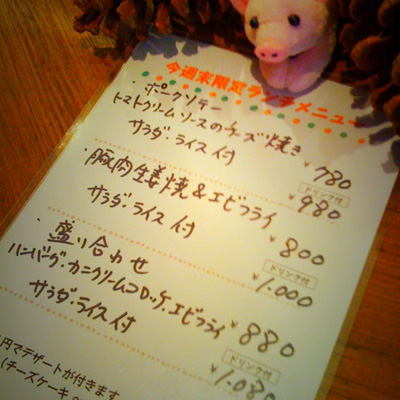 今週末限定ランチメニュー
・ポークソテー
トマトクリームソースのチーズ焼き
サラダ・ライス付 ¥780
ドリンク付
¥980
・豚肉生姜焼&エビフライ
サラダ・ライス付 ¥800
ドリンク付
¥1,000
・盛り合わせ
ハンバーグ・カニクリームコロッケ・エビフライ
サラダ・ライス付 ¥880
ドリンク付
¥1,080
円でデザートが付きます
(チーズケーキ